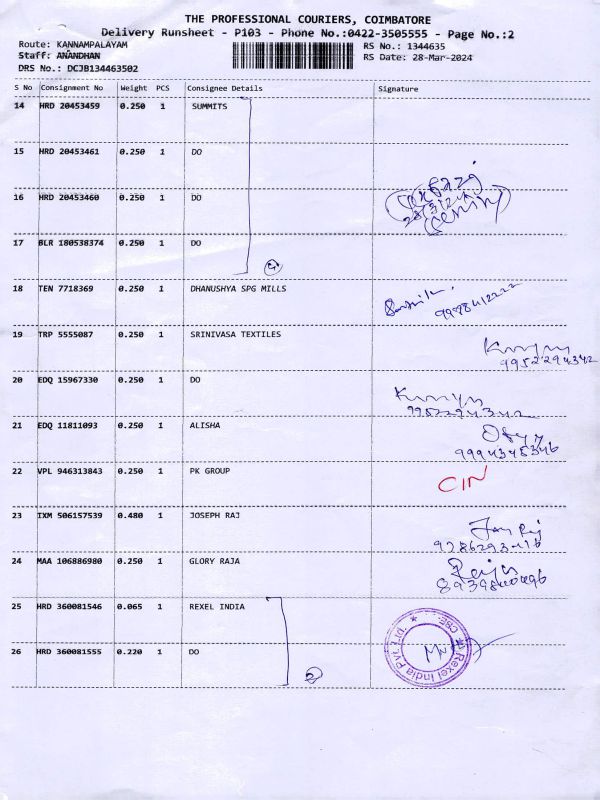 THE PROFESSIONAL COURIERS, COIMBATORE
Delivery Runsheet - P103 - Phone No.:0422-3505555 - Page No.:2
Route: KANNAMPALAYAM RS No.: 1344635
Staff: ANANDHAN RS Date: 28-Mar-2024
DRS No.: DCJB134463502
S No Consignment No Weight PCS Consignee Details Signature
14 HRD 20453459 0.250 1 SUMMITS
15 HRD 20453461 0.250 1 DO
16 HRD 20453460 0.250 1 DO
28/3/24
17 BLR 180538374 0.250 1 DO
4
18 TEN 7718369 0.250 1 DHANUSHYA SPG MILLS
19 TRP 5555087 0.250 1 SRINIVASA TEXTILES
9952294342
20 EDQ 15967330 0.250 1 DO
9952294342
21 EDQ 11811093 0.250 1 ALISHA
9994345346
22 VPL 946313843 0.250 1 PK GROUP CIN
23 IXM 506157539 0.480 1 JOSEPH RAJ
9286293416
24 MAA 106886980 0.250 1 GLORY RAJA
8939840496
25 HRD 360081546 0.065 1 REXEL INDIA
26 HRD 360081555 0.220 1 DO
2
Rexel India Pvt. Ltd. * CBE. *